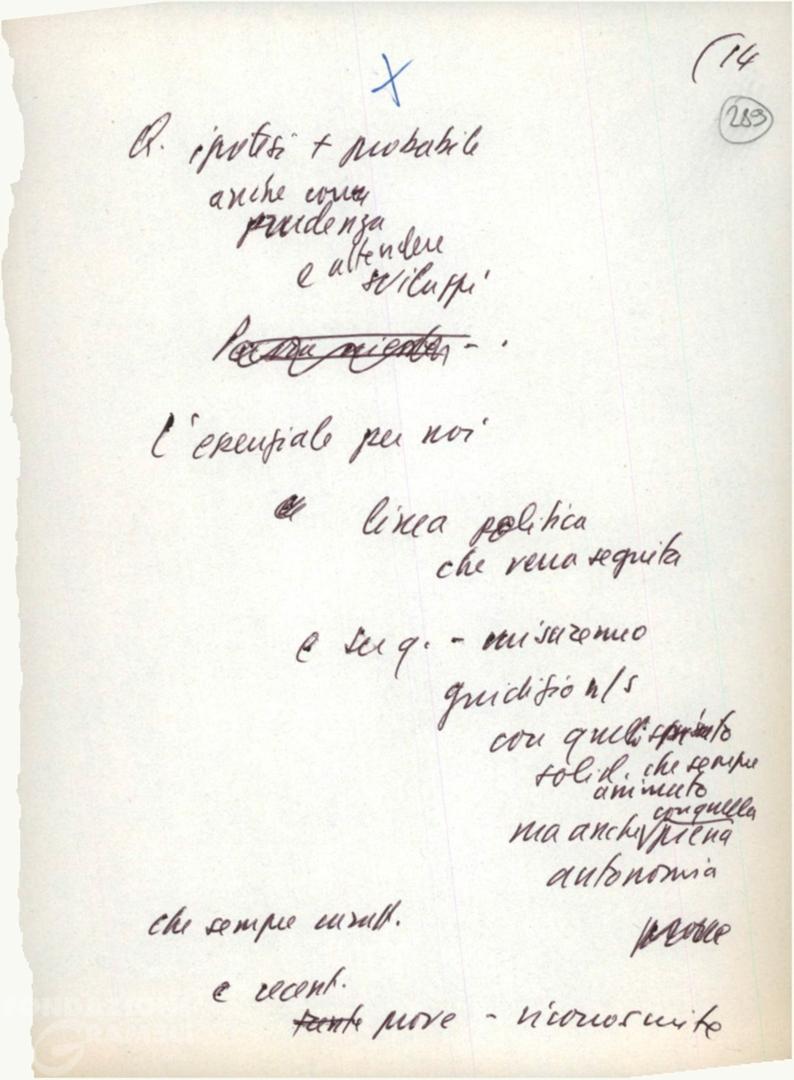 (14
289
Q. ipotesi + probabile
anche come
prudenza
e attendere
sviluppi
L'essenziale per noi
è linea politica
che verrà seguita
e su q. - misuremo
giudizio n/s
con quello spirito
solid. che sempre
animato
con quella
ma anche piena
autonomia
che sempre
e recent.
tante prove - riconosciute
FONDAZIONE
GRAMSCI